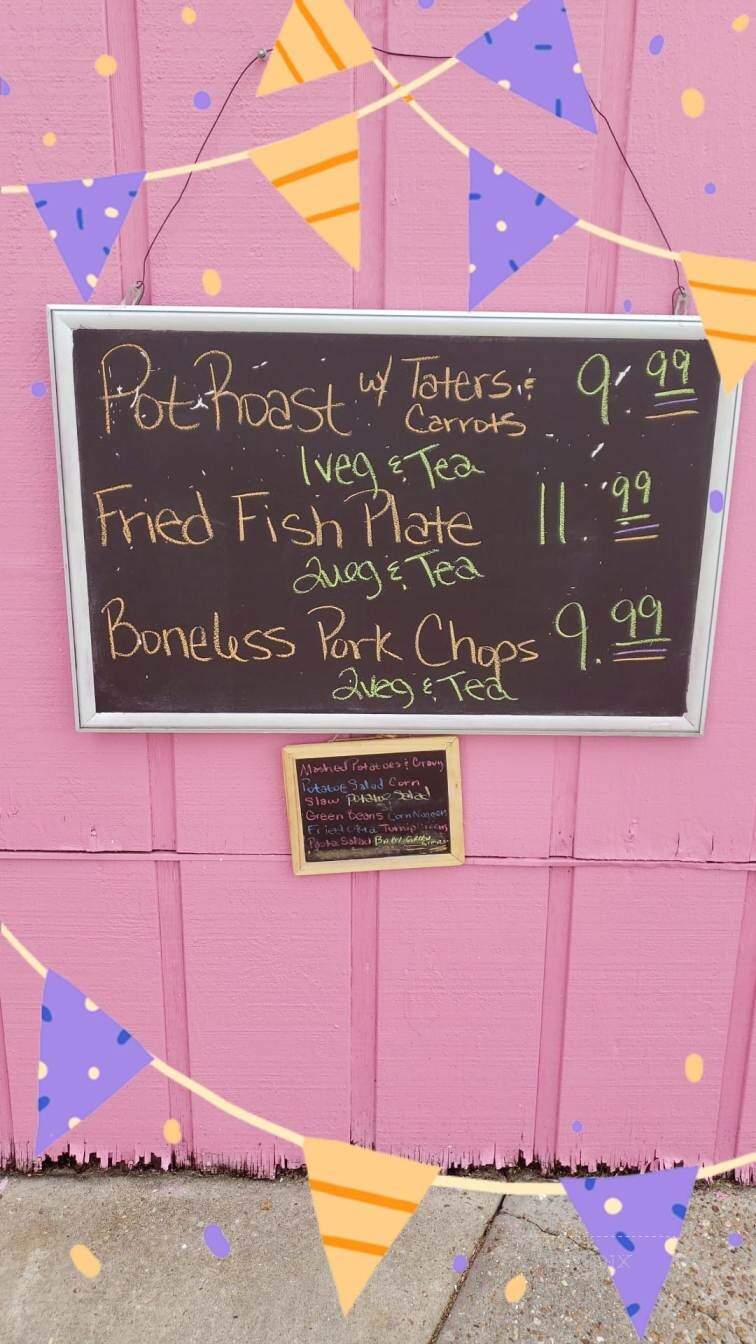 Pot Roast w/ Taters & Carrots 9.99
1 veg & Tea
Fried Fish Plate 11.99
2veg & Tea
Boneless Pork Chops 9.99
2veg & Tea
Mashed Potatoes & Gravy
Potatoe Salad Corn
Slaw Potatoe Salad
Green Beans Corn Nuggets
Fried Okra Turnip Greens
Pasta Salad Baby Green